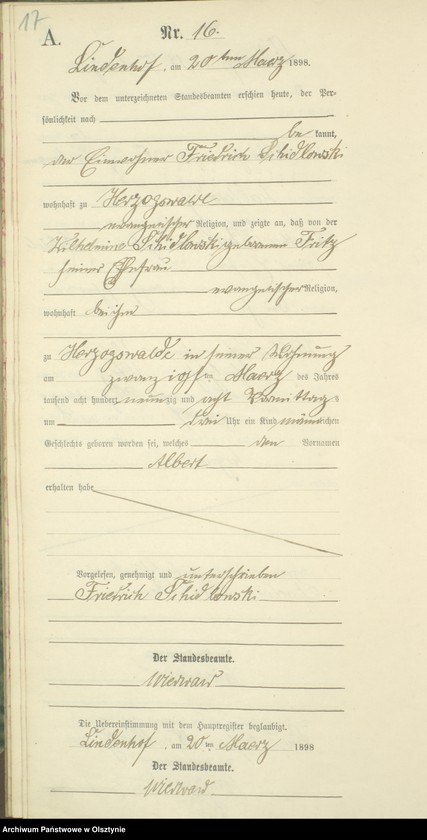 17
A.
Nr. 16.
Lindenhof, am 20ten Maerz 1898.
Vor dem unterzeichneten Standesbeamten erschien heute, der Per-
sönlichkeit nach
be kannt,
der Einwohner Friedrich Schidlowski
wohnhaft zu Herzogswalde
evangelischer Religion, und zeigte an, daß von der
Wilhelmine Schidlowski geborenen Fritz
seiner Ehefrau
evangelischer Religion,
wohnhaft bei ihm
zu Herzogswalde in seiner Wohnung
am zwanzigsten Maerz des Jahres
tausend acht hundert neunzig und acht Vormittags
um drei Uhr ein Kind männlichen
Geschlechts geboren worden sei, welches den Vornamen
Albert
erhalten habe
Vorgelesen, genehmigt und unterschrieben
Friedrich Schidlowski
Der Standesbeamte.
Die Uebereinstimmung mit dem Hauptregister beglaubigt.
Lindenhof, am 20ten Maerz 1898
Der Standesbeamte.
Archiwum Państwowe w Olsztynie